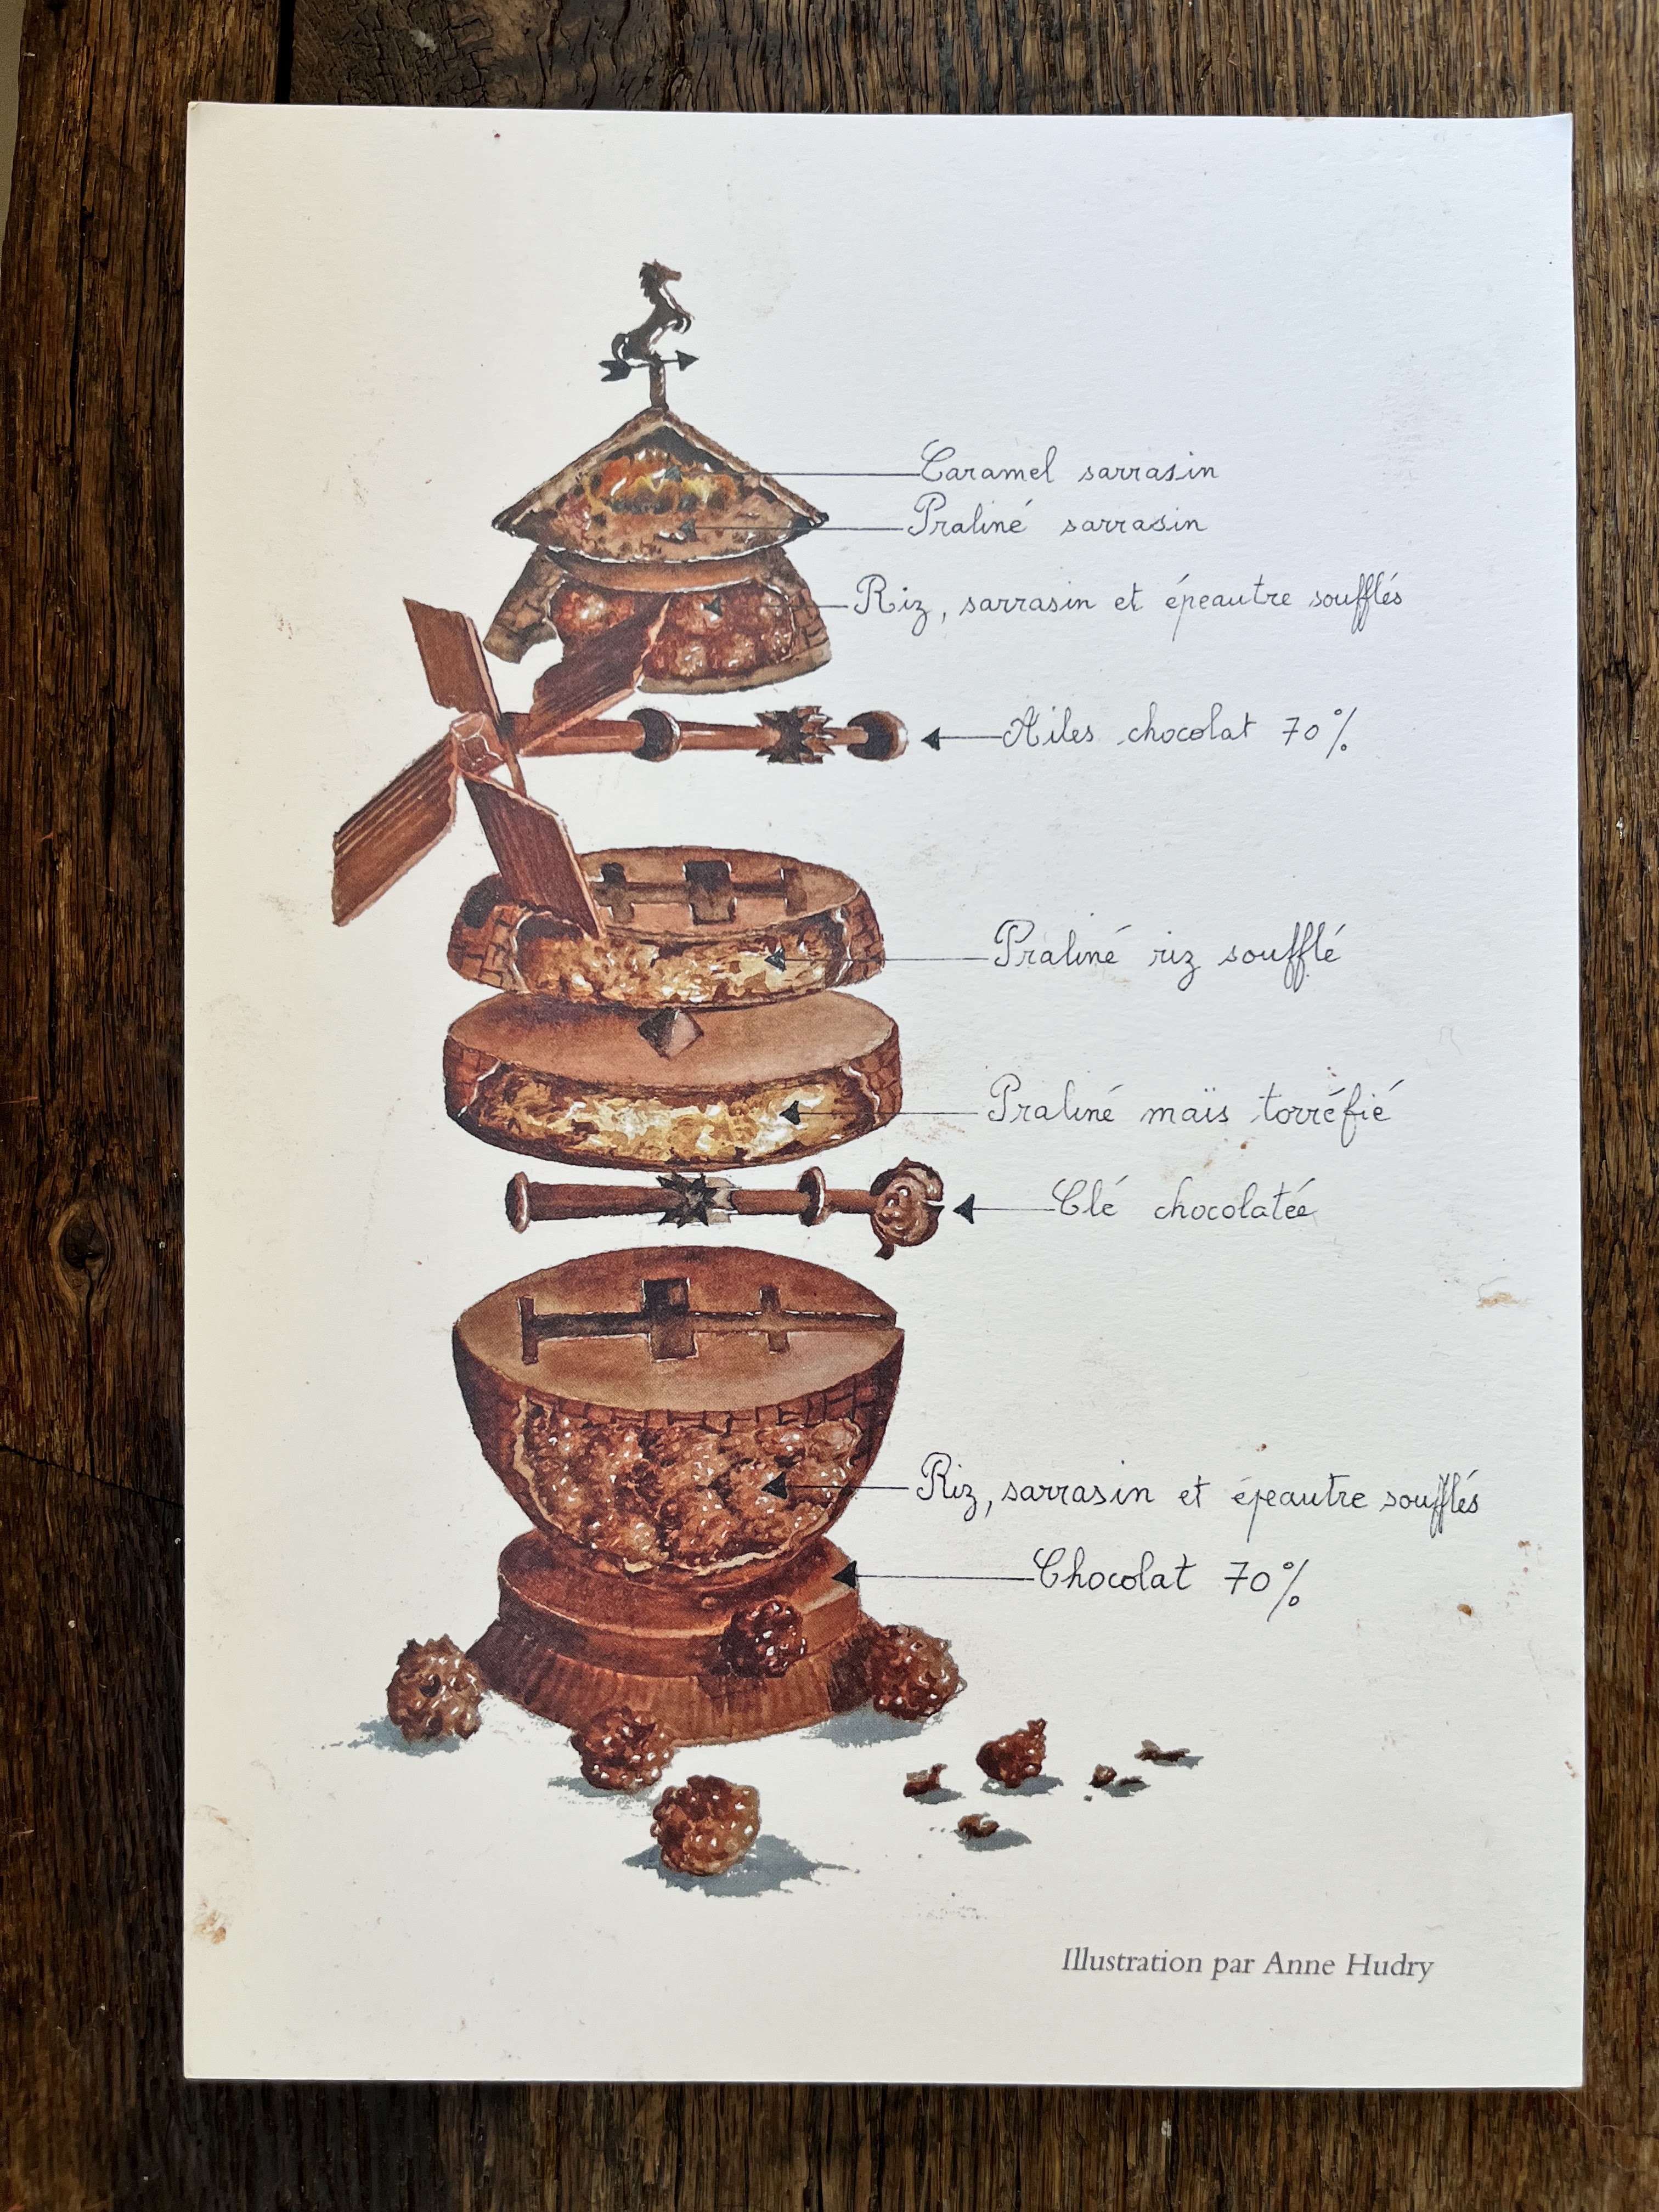 Caramel sarrasin
Praliné sarrasin
Riz, sarrasin et épeautre soufflés
Ailes chocolat 70%
Praliné riz soufflé
Praliné maïs torréfié
Clé chocolatée
Riz, sarrasin et épeautre soufflés
Chocolat 70%
Illustration par Anne Hudry